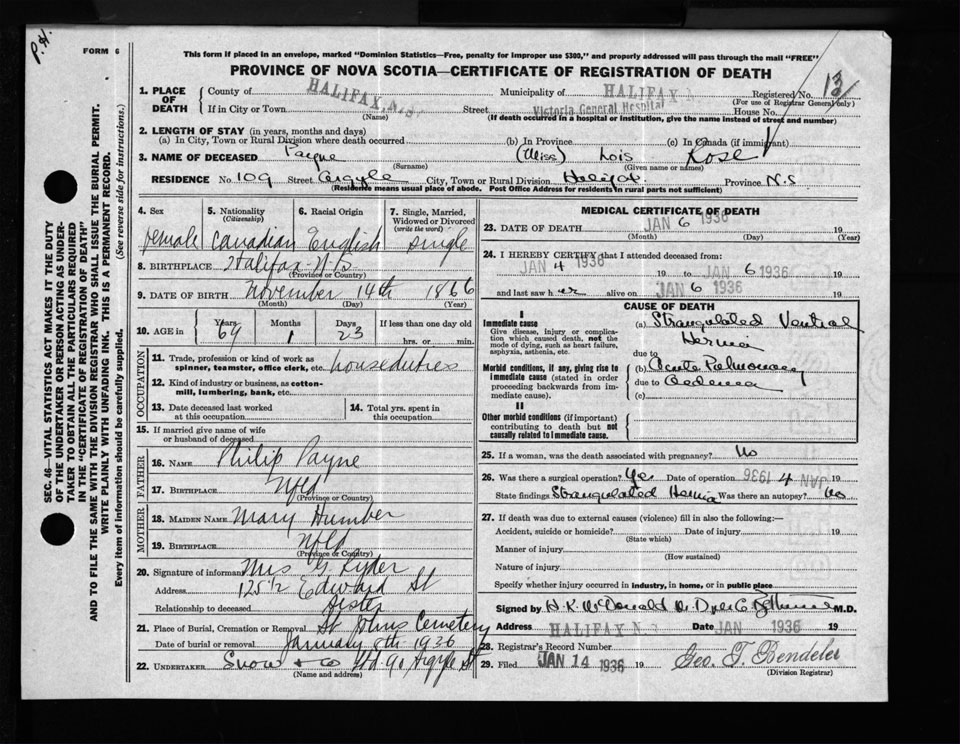 P.H.
FORM 6
This form if placed in an envelope, marked "Dominion Statistics—Free, penalty for improper use $300," and properly addressed will pass through the mail "FREE"
PROVINCE OF NOVA SCOTIA—CERTIFICATE OF REGISTRATION OF DEATH
1. PLACE OF DEATH County of HALIFAX, N.S. Municipality of HALIFAX N Registered No. 13
(For use of Registrar General only)
If in City or Town (Name) Street Victoria General Hospital House No.
(If death occurred in a hospital or institution, give the name instead of street and number)
2. LENGTH OF STAY (in years, months and days)
(a) In City, Town or Rural Division where death occurred (b) In Province (c) In Canada (if immigrant)
3. NAME OF DECEASED Payne (Miss) Lois Rose
(Surname) (Given name or names)
RESIDENCE No 109 Street Argyle City, Town or Rural Division Halifax Province N.S
(Residence means usual place of abode. Post Office Address for residents in rural parts not sufficient)
4. Sex 5. Nationality (Citizenship) 6. Racial Origin 7. Single, Married, Widowed or Divorced (write the word)
female Canadian English single
8. BIRTHPLACE Halifax N.S.
(Province or Country)
9. DATE OF BIRTH November 14th 1866
(Month) (Day) (Year)
10. AGE in Years Months Days If less than one day old
69 1 23 hrs. or min.
OCCUPATION
11. Trade, profession or kind of work as spinner, teamster, office clerk, etc. houseduties
12. Kind of industry or business, as cotton-mill, lumbering, bank, etc.
13. Date deceased last worked at this occupation 14. Total yrs. spent in this occupation
15. If married give name of wife or husband of deceased
FATHER
16. NAME Philip Payne
17. BIRTHPLACE Nfld
(Province or Country)
MOTHER
18. MAIDEN NAME Mary Humber
19. BIRTHPLACE Nfld
(Province or Country)
20. Signature of informant Mrs G. Ryder
Address 125½ Edward St
Relationship to deceased Sister
21. Place of Burial, Cremation or Removal St Johns Cemetery
Date of burial or removal January 8th 1936
22. UNDERTAKER Snow & Co Ltd 90 Argyle St
(Name and address)
MEDICAL CERTIFICATE OF DEATH
23. DATE OF DEATH JAN 6 1936 19
(Month) (Day) (Year)
24. I HEREBY CERTIFY that I attended deceased from:
JAN 4 1936 19 to JAN 6 1936 19
and last saw her alive on JAN 6 1936 19
CAUSE OF DEATH
I
Immediate cause
Give disease, injury or complication which caused death, not the mode of dying, such as heart failure, asphyxia, asthenia, etc.
(a) Strangulated Ventral Hernia
due to
Morbid conditions, if any, giving rise to immediate cause (stated in order proceeding backwards from immediate cause).
(b) Acute Pulmonary
due to Oedema
(c)
II
Other morbid conditions (if important) contributing to death but not causally related to immediate cause.
25. If a woman, was the death associated with pregnancy? No
26. Was there a surgical operation? Yes Date of operation JAN 4 1936 19
State findings Strangulated Hernia Was there an autopsy? No
27. If death was due to external causes (violence) fill in also the following:—
Accident, suicide or homicide? Date of injury 19
(State which)
Manner of injury
(How sustained)
Nature of injury
Specify whether injury occurred in industry, in home, or in public place
Signed by H. K. McDonald M.D.
Address HALIFAX N S Date JAN 1936 19
28. Registrar's Record Number
29. Filed JAN 14 1936 19 Geo. T. Bendeler
(Division Registrar)
SEC. 46—VITAL STATISTICS ACT MAKES IT THE DUTY
OF THE UNDERTAKER OR PERSON ACTING AS UNDER-
TAKER TO OBTAIN ALL THE PARTICULARS REQUIRED
IN THE "CERTIFICATE OF REGISTRATION OF DEATH"
AND TO FILE THE SAME WITH THE DIVISION REGISTRAR WHO SHALL ISSUE THE BURIAL PERMIT.
WRITE PLAINLY WITH UNFADING INK. THIS IS A PERMANENT RECORD.
Every item of information should be carefully supplied. (See reverse side for instructions.)